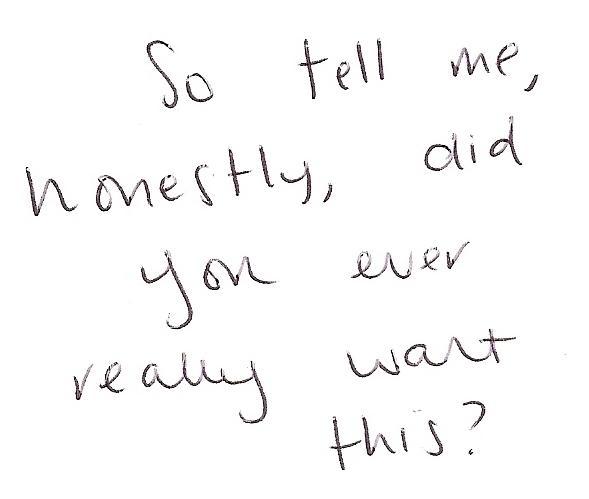 So tell me,
honestly, did
you ever
really want
this?